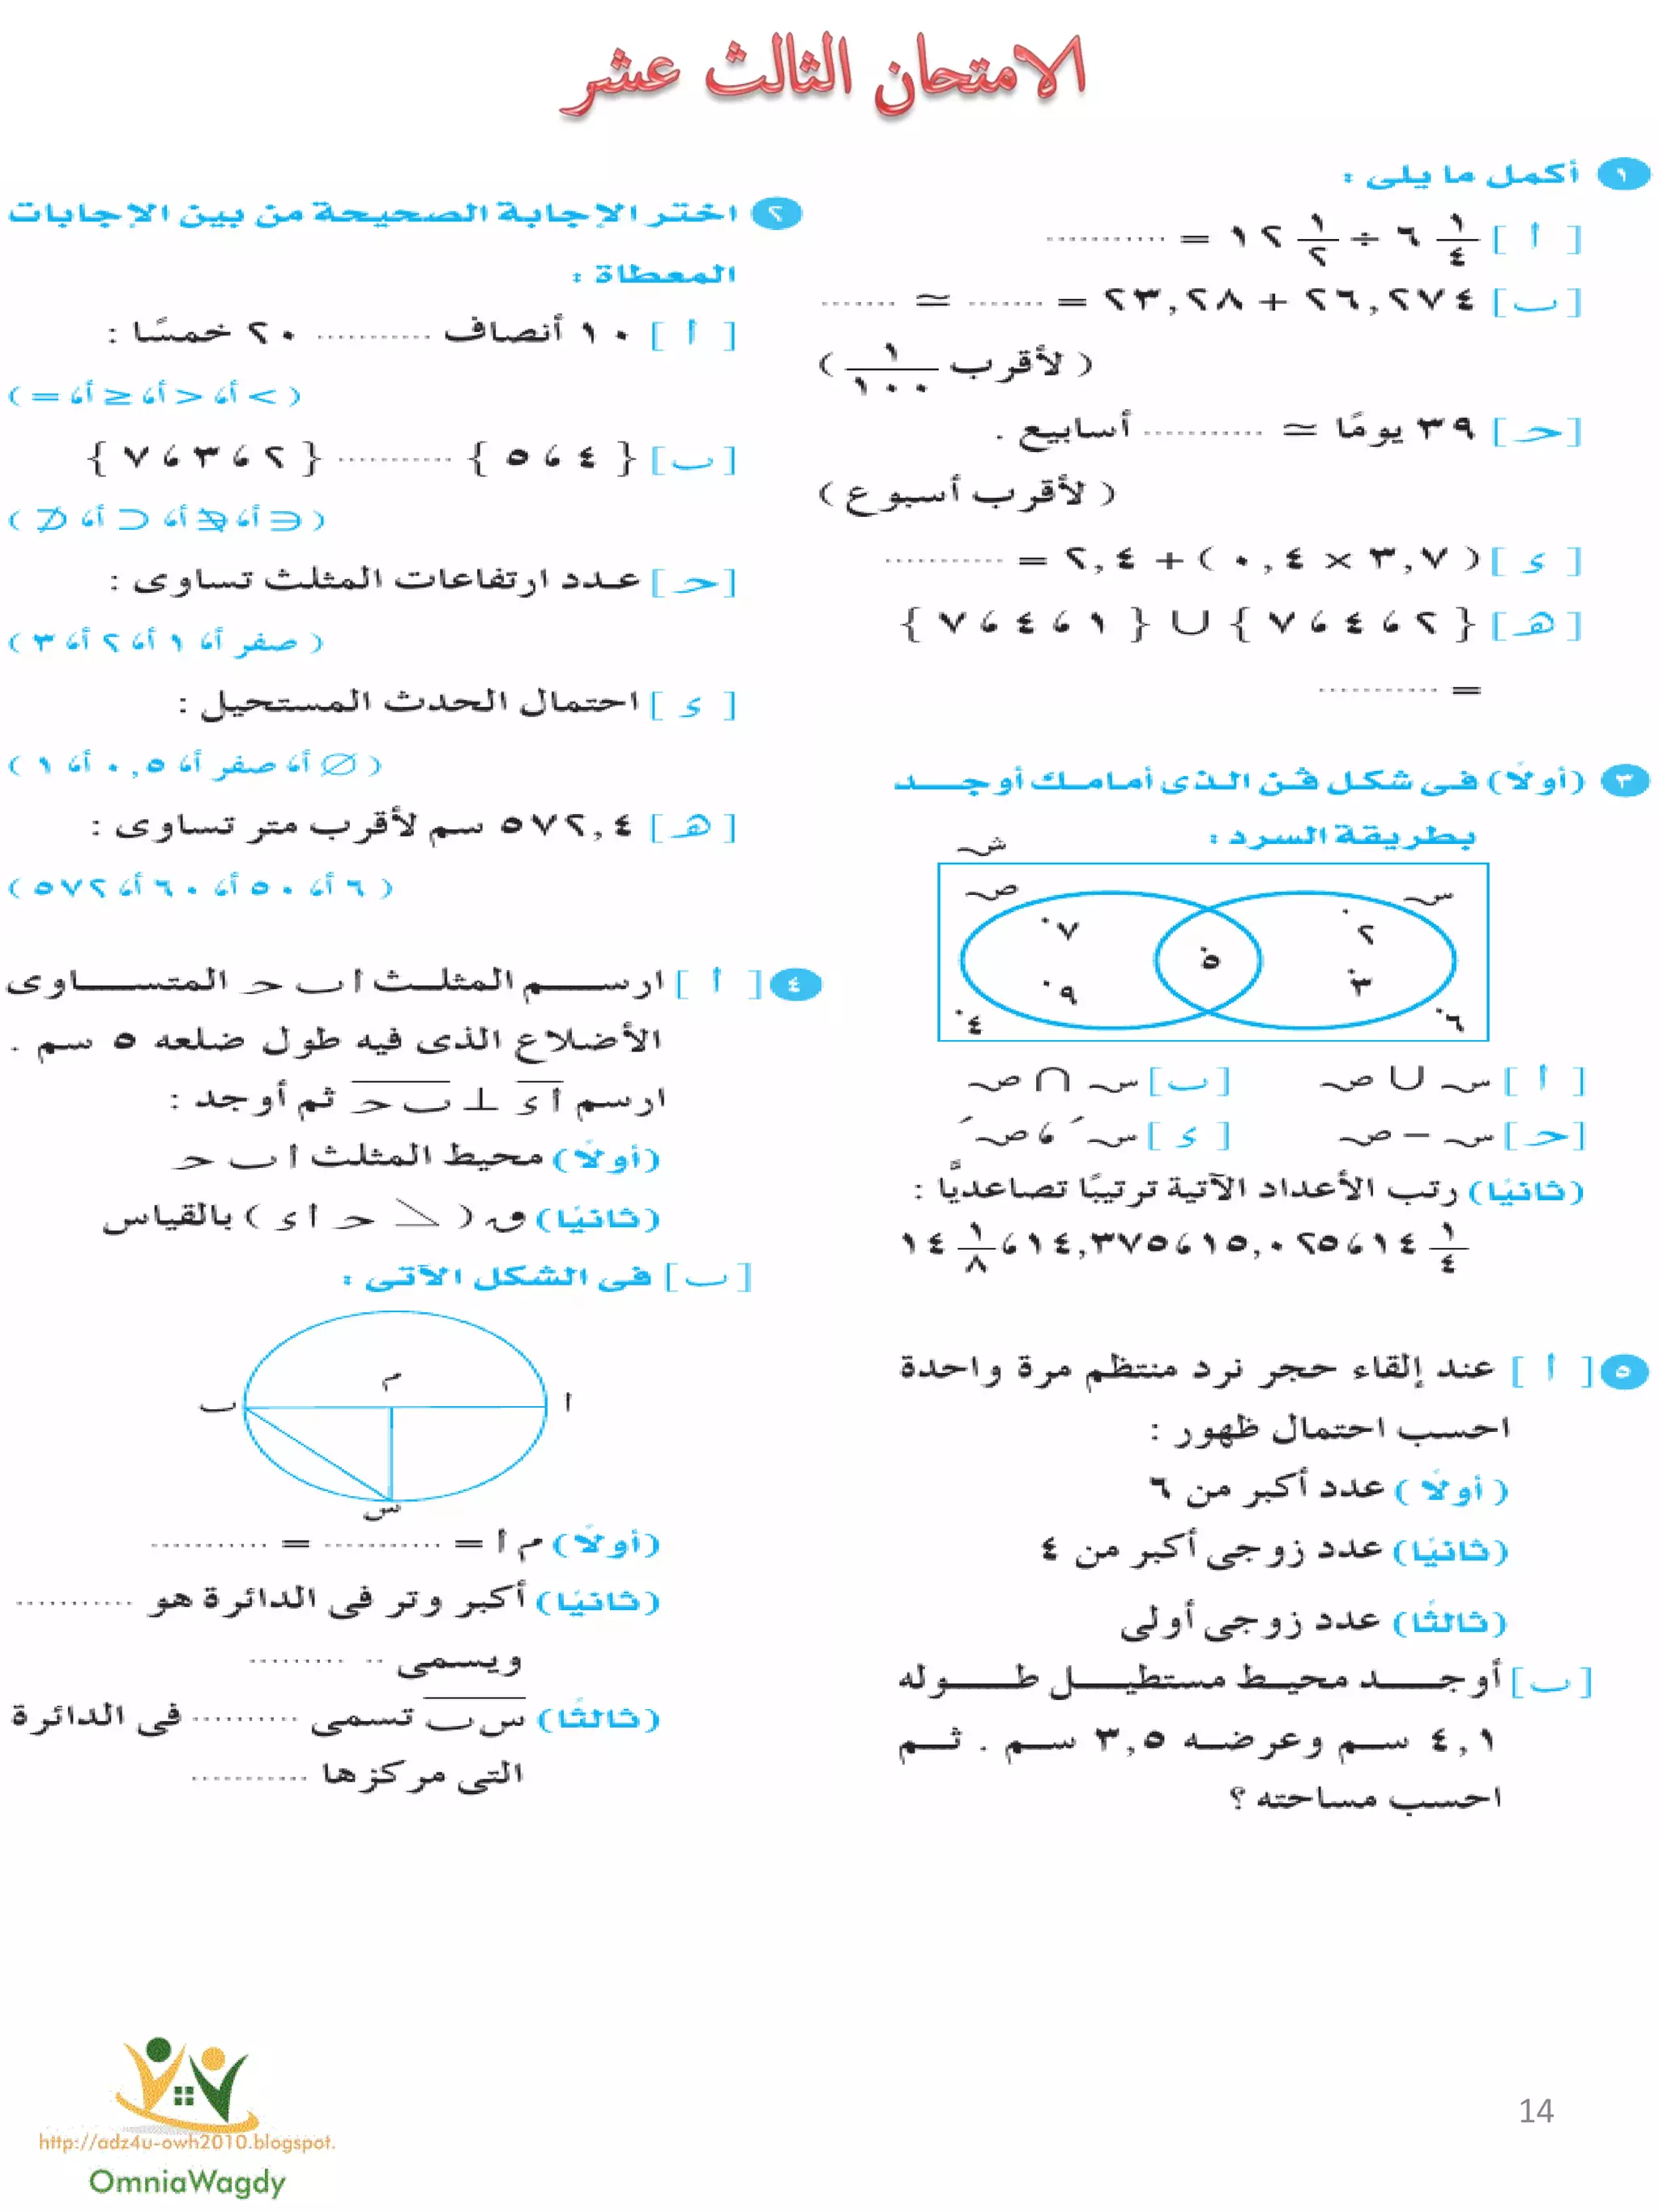 الامتحان الثالث عشر
١ أكمل ما يلى :
[ أ ] ٦ ١/٤ ÷ ١٢ ١/٢ = ............
[ب] ٢٦,٢٧٤ + ٢٣,٢٨ = ........ ≃ ........
( لأقرب ١/١٠٠ )
[حـ] ٣٩ يومًا ≃ ............ أسابيع .
( لأقرب أسبوع )
[ ء ] ( ٣,٧ × ٠,٤ ) + ٢,٤ = ............
[هـ] { ٢ ، ٤ ، ٧ } ∪ { ١ ، ٤ ، ٧ }
= ............
٢ اختر الإجابة الصحيحة من بين الإجابات
المعطاة :
[ أ ] ١٠ أنصاف ............ ٢٠ خمسًا :
( > أ، < أ، ≥ أ، = )
[ب] { ٤ ، ٥ } ............ { ٢ ، ٣ ، ٧ }
( ∋ أ، ∌ أ، ⊃ أ، ⊅ )
[حـ] عدد ارتفاعات المثلث تساوى :
( صفر أ، ١ أ، ٢ أ، ٣ )
[ ء ] احتمال الحدث المستحيل :
( ∅ أ، صفر أ، ٠,٥ أ، ١ )
[هـ] ٥٧٢,٤ سم لأقرب متر تساوى :
( ٦ أ، ٦٠ أ، ٥٠ أ، ٥٧٢ )
٣ (أولاً) فى شكل فن الذى أمامك أوجد
بطريقة السرد :
ش
س
ص
٢
٣
٥
٧
٩
٦
٤
[ أ ] س ∪ ص [ب] س ∩ ص
[حـ] س – ص [ ء ] سَ ، صَ
(ثانيًا) رتب الأعداد الآتية ترتيبًا تصاعديًّا :
١٤ ١/٤ ، ١٥,٠٢٥ ، ١٤,٣٧٥ ، ١٤ ١/٨
٤ [ أ ] ارسم المثلث أ ب حـ المتساوى
الأضلاع الذى فيه طول ضلعه ٥ سم .
ارسم أ ء ⊥ ب حـ ثم أوجد :
(أولاً) محيط المثلث أ ب حـ
(ثانيًا) ق ( ∠ حـ أ ء ) بالقياس
[ب] فى الشكل الآتى :
م
أ
ب
س
(أولاً) م أ = ............ = ............
(ثانيًا) أكبر وتر فى الدائرة هو ............
ويسمى .. .........
(ثالثًا) س ب تسمى ........... فى الدائرة
التى مركزها ............
٥ [ أ ] عند إلقاء حجر نرد منتظم مرة واحدة
احسب احتمال ظهور :
( أولاً ) عدد أكبر من ٦
(ثانيًا) عدد زوجى أكبر من ٤
(ثالثًا) عدد زوجى أولى
[ب] أوجد محيط مستطيل طوله
٤,١ سم وعرضه ٣,٥ سم . ثم
احسب مساحته ؟
http://adz4u-owh2010.blogspot.
OmniaWagdy
14